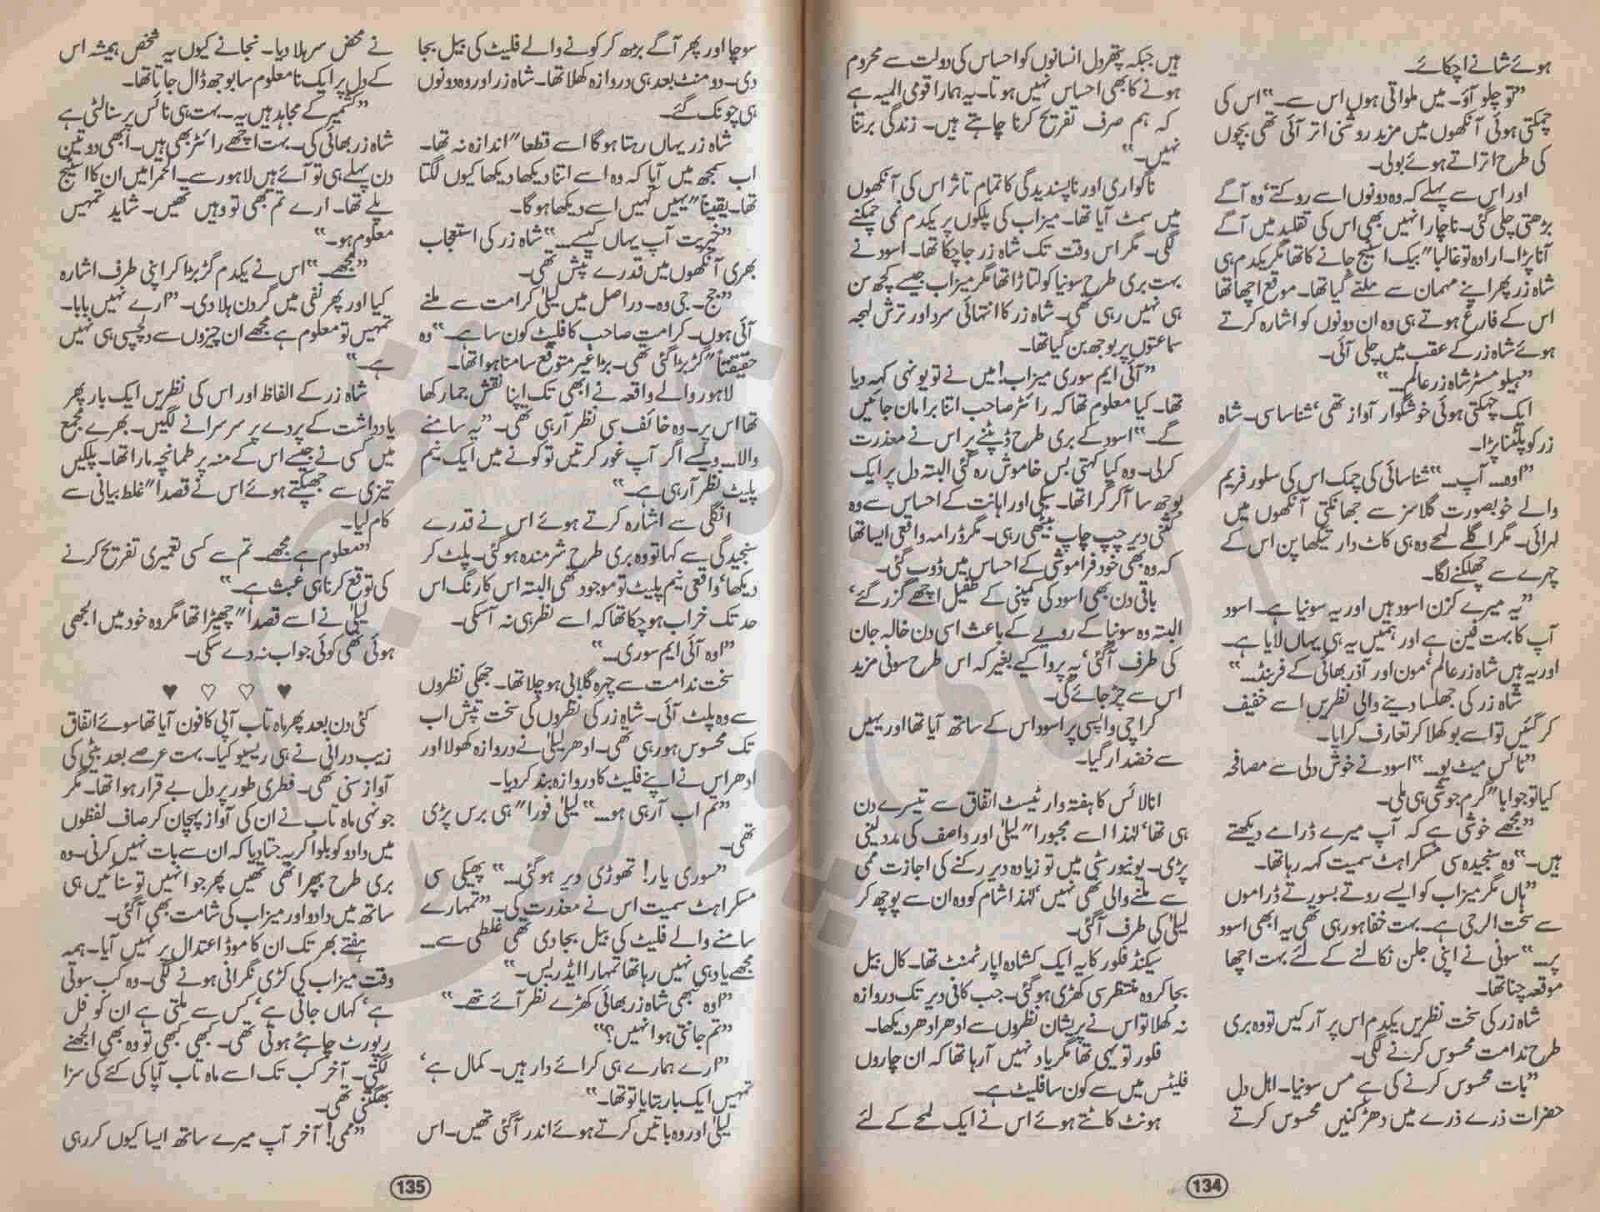 ہوئے شانے اچکائے۔
”تو چلو آؤ۔ میں ملواتی ہوں اس سے۔“ اس کی
چمکتی ہوئی آنکھوں میں مزید روشنی اتر آئی تھی بچوں
کی طرح اتراتے ہوئے بولی۔
اور اس سے پہلے کہ وہ دونوں اسے روکتے‘ وہ آگے
بڑھتی چلی گئی۔ ناچار انہیں بھی اس کی تقلید میں آگے
آنا پڑا۔ ارادہ تو غالباً” بیک اسٹیج جانے کا تھا مگر یکدم ہی
شاہ زر پھر اپنے مہمان سے ملنے گیا تھا۔ موقع اچھا تھا
اس کے فارغ ہوتے ہی وہ ان دونوں کو اشارہ کرتے
ہوئے شاہ زر کے عقب میں چلی آئی۔
”ہیلو مسٹر شاہ زر عالم۔“
ایک چمکتی ہوئی خوشگوار آواز تھی‘ شناسا سی۔ شاہ
زر کو پلٹنا پڑا۔
”اوہ۔ آپ۔“ شناسائی کی چمک اس کی سلور فریم
والے خوبصورت گلاسز سے جھانکتی آنکھوں میں
لہرائی۔ مگر اگلے لمحے وہ ہی کاٹ دار تیکھا پن اس کے
چہرے سے چھلکنے لگا۔
”یہ میرے کزن اسود ہیں اور یہ سونیا ہے۔ اسود
آپ کا بہت فین ہے اور ہمیں یہ ہی یہاں لایا ہے۔
اور یہ ہیں شاہ زر عالم‘ مون اور آذر بھائی کے فرینڈ۔“
شاہ زر کی جھلسا دینے والی نظریں اسے خفیف
کر گئیں تو اسے بوکھلا کر تعارف کرایا۔
”نائس میٹ یو۔“ اسود نے خوش دلی سے مصافحہ
کیا تو جواباً” گرم جوشی ہی ملی۔
”مجھے خوشی ہے کہ آپ میرے ڈرامے دیکھتے
ہیں۔“ وہ سنجیدہ سی مسکراہٹ سمیت کہہ رہا تھا۔
”ہاں مگر میزاب کو ایسے روتے بسورتے ڈراموں
سے سخت الرجی ہے۔ بہت خفا ہو رہی تھی یہ ابھی اسود
پر۔“ سونی نے اپنی جلن نکالنے کے لئے بہت اچھا
موقعہ چنا تھا۔
شاہ زر کی سخت نظریں یکدم اس پر آرکیں تو وہ بری
طرح ندامت محسوس کرنے لگی۔
”بات محسوس کرنے کی ہے مس سونیا۔ اہل دل
حضرات ذرے ذرے میں دھڑکنیں محسوس کرتے
ہیں جبکہ پتھر دل انسانوں کو احساس کی دولت سے محروم
ہونے کا بھی احساس نہیں ہوتا۔ یہ ہمارا قومی المیہ ہے
کہ ہم صرف تفریح کرنا چاہتے ہیں۔ زندگی برتنا
نہیں۔“
ناگواری اور ناپسندیدگی کا تمام تاثر اس کی آنکھوں
میں سمٹ آیا تھا۔ میزاب کی پلکوں پر یکدم نمی چمکنے
لگی۔ مگر اس وقت تک شاہ زر جا چکا تھا۔ اسود نے
بہت بری طرح سونیا کو لتاڑا تھا مگر میزاب جیسے کچھ سن
ہی نہیں رہی تھی۔ شاہ زر کا انتہائی سرد اور ترش لہجہ
سماعتوں پر بوجھ بن گیا تھا۔
”آئی ایم سوری میزاب! میں نے تو یونہی کہہ دیا
تھا۔ کیا معلوم تھا کہ رائٹر صاحب اتنا برا مان جائیں
گے۔“ اسود کے بری طرح ڈپٹنے پر اس نے معذرت
کرلی۔ وہ کیا کہتی بس خاموش رہ گئی البتہ دل پر ایک
بوجھ سا آگرا تھا۔ سبکی اور اہانت کے احساس سے وہ
کتنی دیر چپ چاپ بیٹھی رہی۔ مگر ڈرامہ واقعی ایسا تھا
کہ وہ بھی خود فراموشی کے احساس میں ڈوب گئی۔
باقی دن بھی اسود کی کمپنی کے طفیل اچھے گزر گئے‘
البتہ وہ سونیا کے رویے کے باعث اسی دن خالہ جان
کی طرف آگئی‘ یہ پروا کیے بغیر کہ اس طرح سونی مزید
اس سے چڑ جائے گی۔
کراچی واپسی پر اسود اس کے ساتھ آیا تھا اور یہیں
سے خضدار گیا۔
انالائس کا ہفتہ وار ٹیسٹ اتفاق سے تیسرے دن
ہی تھا‘ لہٰذا اسے مجبوراً” لیلیٰ اور واصف کی مدد لینی
پڑی۔ یونیورسٹی میں تو زیادہ دیر رکنے کی اجازت ممی
سے ملنے والی تھی نہیں‘ لہٰذا شام کو وہ ان سے پوچھ کر
لیلیٰ کی طرف آگئی۔
سیکنڈ فلور کا یہ ایک کشادہ اپارٹمنٹ تھا۔ کال بیل
بجا کر وہ منتظر سی کھڑی ہو گئی۔ جب کافی دیر تک دروازہ
نہ کھلا تو اس نے پریشان نظروں سے ادھر ادھر دیکھا۔
فلور تو یہی تھا مگر یاد نہیں آرہا تھا کہ ان چاروں
فلیٹس میں سے کون سا فلیٹ ہے۔
ہونٹ کاٹتے ہوئے اس نے ایک لمحے کے لئے
134
سوچا اور پھر آگے بڑھ کر کونے والے فلیٹ کی بیل بجا
دی۔ دو منٹ بعد ہی دروازہ کھلا تھا۔ شاہ زر اور وہ دونوں
ہی چونک گئے۔
شاہ زر یہاں رہتا ہوگا اسے قطعاً” اندازہ نہ تھا۔
اب سمجھ میں آیا کہ وہ اسے اتنا دیکھا دیکھا کیوں لگتا
تھا۔ یقیناً” یہیں کہیں اسے دیکھا ہوگا۔
”خیریت آپ یہاں کیسے۔“ شاہ زر کی استعجاب
بھری آنکھوں میں قدرے تپش تھی۔
”جج۔ جی وہ۔ دراصل میں لیلیٰ کرامت سے ملنے
آئی ہوں۔ کرامت صاحب کا فلیٹ کون سا ہے۔“ وہ
حقیقتاً” گڑبڑا گئی تھی۔ بڑا غیر متوقع سامنا ہوا تھا۔
لاہور والے واقعہ نے ابھی تک اپنا نقش جما رکھا
تھا اس پر۔ وہ خائف سی نظر آرہی تھی۔ ”یہ سامنے
والا۔ ویسے اگر آپ غور کرتیں تو کونے میں ایک نیم
پلیٹ نظر آرہی ہے۔“
انگلی سے اشارہ کرتے ہوئے اس نے قدرے
سنجیدگی سے کہا تو وہ بری طرح شرمندہ ہو گئی۔ پلٹ کر
دیکھا‘ واقعی نیم پلیٹ تو موجود تھی البتہ اس کا رنگ اس
حد تک خراب ہو چکا تھا کہ اسے نظر ہی نہ آسکی۔
”اوہ آئی ایم سوری۔“
سخت ندامت سے چہرہ گلابی ہو چلا تھا۔ جھکی نظروں
سے وہ پلٹ آئی۔ شاہ زر کی نظروں کی سخت تپش اب
تک محسوس ہو رہی تھی۔ ادھر لیلیٰ نے دروازہ کھولا اور
ادھر اس نے اپنے فلیٹ کا دروازہ بند کردیا۔
”تم اب آرہی ہو۔“ لیلیٰ فوراً” ہی برس پڑی
تھی۔
”سوری یار! تھوڑی دیر ہو گئی۔“ پھیکی سی
مسکراہٹ سمیت اس نے معذرت کی۔ ”تمہارے
سامنے والے فلیٹ کی بیل بجا دی تھی غلطی سے۔
مجھے یاد ہی نہیں رہا تھا تمہارا ایڈریس۔“
”اوہ تبھی شاہ زر بھائی کھڑے نظر آئے تھے۔“
”تم جانتی ہو انہیں؟“
”ارے ہمارے ہی کرائے دار ہیں۔ کمال ہے‘
تمہیں ایک بار بتایا تو تھا۔“
لیلیٰ اور وہ باتیں کرتے ہوئے اندر آگئی تھیں۔ اس
نے محض سر ہلا دیا۔ نجانے کیوں یہ شخص ہمیشہ اس
کے دل پر ایک نامعلوم سا بوجھ ڈال جاتا تھا۔
”کشمیر کے مجاہد ہیں یہ۔ بہت ہی نائس پرسنالٹی ہے
شاہ زر بھائی کی۔ بہت اچھے رائٹر بھی ہیں۔ ابھی دو تین
دن پہلے ہی تو آئے ہیں لاہور سے۔ الحمرا میں ان کا اسٹیج
پلے تھا۔ ارے تم بھی تو وہیں تھیں۔ شاید تمہیں
معلوم ہو۔“
”مجھے۔“ اس نے یکدم گڑبڑا کر اپنی طرف اشارہ
کیا اور پھر نفی میں گردن ہلا دی۔ ”ارے نہیں بابا۔
تمہیں تو معلوم ہے مجھے ان چیزوں سے دلچسپی ہی نہیں
ہے۔“
شاہ زر کے الفاظ اور اس کی نظریں ایک بار پھر
یادداشت کے پردے پر سرسرانے لگیں۔ بھرے مجمع
میں کسی نے جیسے اس کے منہ پر طمانچہ مارا تھا۔ پلکیں
تیزی سے جھپکتے ہوئے اس نے قصداً” غلط بیانی سے
کام لیا۔
”معلوم ہے مجھے۔ تم سے کسی تعمیری تفریح کرنے
کی توقع کرنا ہی عبث ہے۔“
لیلیٰ نے اسے قصداً” چھیڑا تھا مگر وہ خود میں الجھی
ہوئی تھی کوئی جواب نہ دے سکی۔
♥ ♡ ♡ ♥
کئی دن بعد پھر ماہ تاب آپی کا فون آیا تھا سوئے اتفاق
زیب درانی نے ہی ریسیو کیا۔ بہت عرصے بعد بیٹی کی
آواز سنی تھی۔ فطری طور پر دل بے قرار ہوا تھا۔ مگر
جونہی ماہ تاب نے ان کی آواز پہچان کر صاف لفظوں
میں دادو کو بلوا کر یہ جتا دیا کہ ان سے بات نہیں کرنی۔ وہ
بری طرح بپھر اٹھی تھیں پھر جو انہیں تو سنائیں ہی
ساتھ میں دادو اور میزاب کی شامت بھی آگئی۔
ہفتے بھر تک ان کا موڈ اعتدال پر نہیں آیا۔ ہمہ
وقت میزاب کی کڑی نگرانی ہونے لگی۔ وہ کب سوتی
ہے‘ کہاں جاتی ہے‘ کس سے ملتی ہے ان کو فل
رپورٹ چاہئے ہوتی تھی۔ کبھی کبھی تو وہ بھی الجھنے
لگتی۔ آخر کب تک اسے ماہ تاب آپا کی کئے کی سزا
بھگتنی تھی۔
”ممی! آخر آپ میرے ساتھ ایسا کیوں کر رہی
135